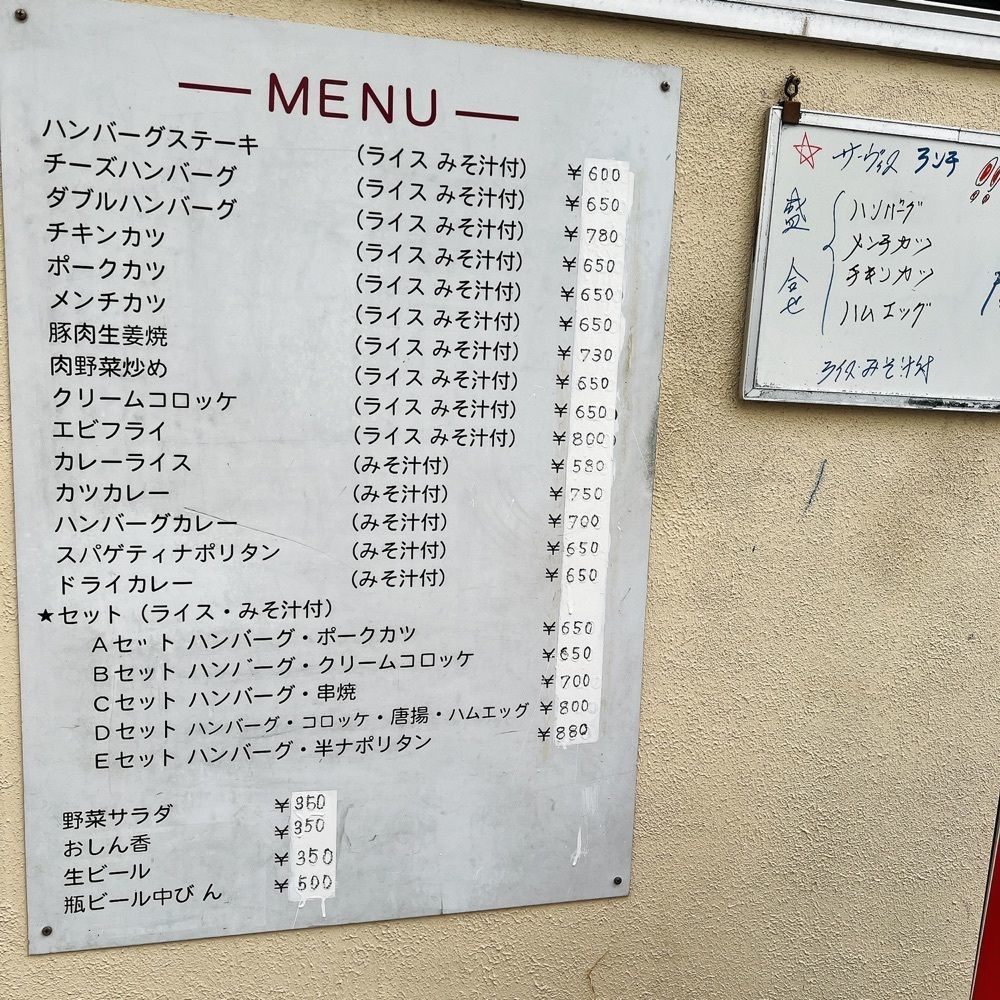 MENU
ハンバーグステーキ (ライス みそ汁付) ¥600
チーズハンバーグ (ライス みそ汁付) ¥650
ダブルハンバーグ (ライス みそ汁付) ¥780
チキンカツ (ライス みそ汁付) ¥650
ポークカツ (ライス みそ汁付) ¥650
メンチカツ (ライス みそ汁付) ¥650
豚肉生姜焼 (ライス みそ汁付) ¥730
肉野菜炒め (ライス みそ汁付) ¥650
クリームコロッケ (ライス みそ汁付) ¥650
エビフライ (ライス みそ汁付) ¥800
カレーライス (みそ汁付) ¥580
カツカレー (みそ汁付) ¥750
ハンバーグカレー (みそ汁付) ¥700
スパゲティナポリタン (みそ汁付) ¥650
ドライカレー (みそ汁付) ¥650
★セット (ライス・みそ汁付)
Aセット ハンバーグ・ポークカツ ¥650
Bセット ハンバーグ・クリームコロッケ ¥650
Cセット ハンバーグ・串焼 ¥700
Dセット ハンバーグ・コロッケ・唐揚・ハムエッグ ¥800
Eセット ハンバーグ・半ナポリタン ¥880
野菜サラダ ¥350
おしん香 ¥350
生ビール ¥350
瓶ビール中びん ¥500
☆ サーヴィス ランチ
盛合せ
ハンバーグ
メンチカツ
チキンカツ
ハムエッグ
ライス・みそ汁付